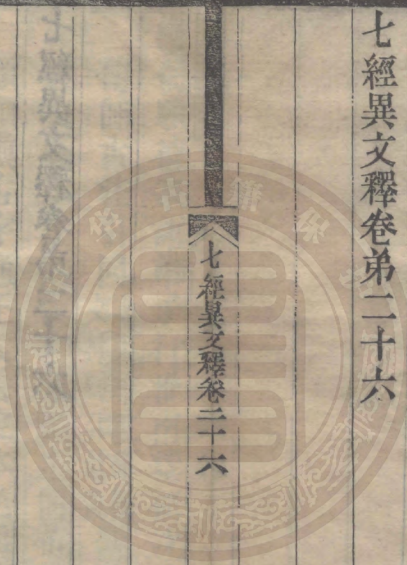 七經異文釋卷弟二十六
七經異文釋卷二十六